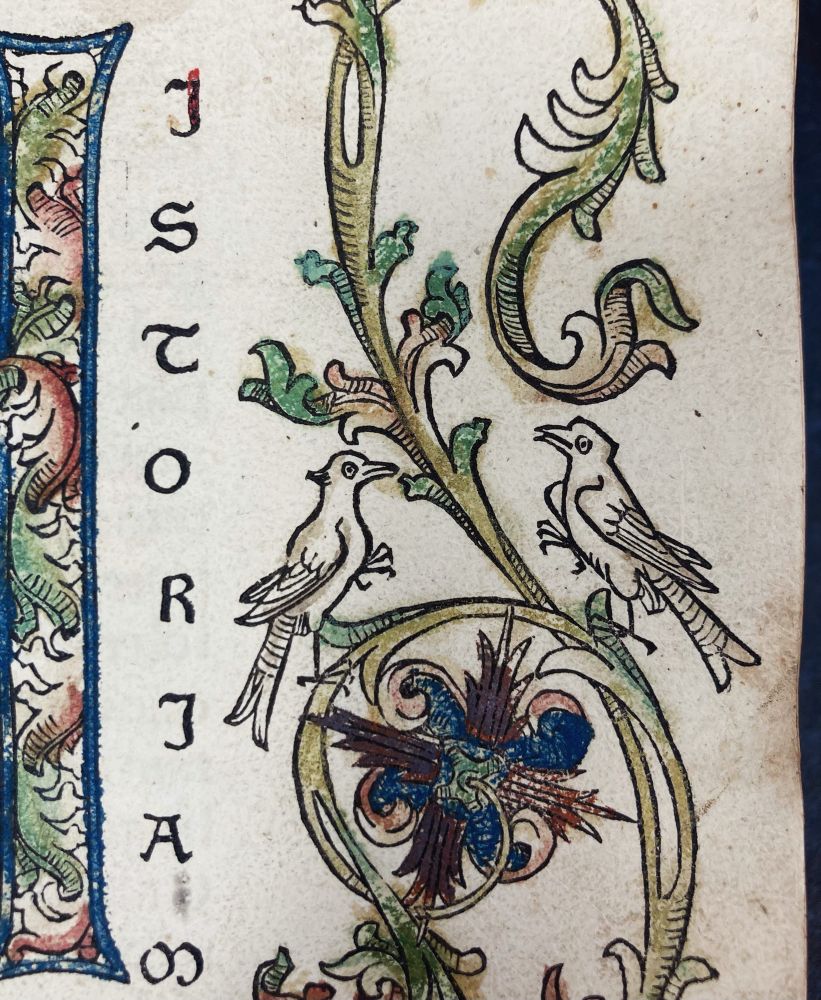 I
S
T
O
R
I
A
M